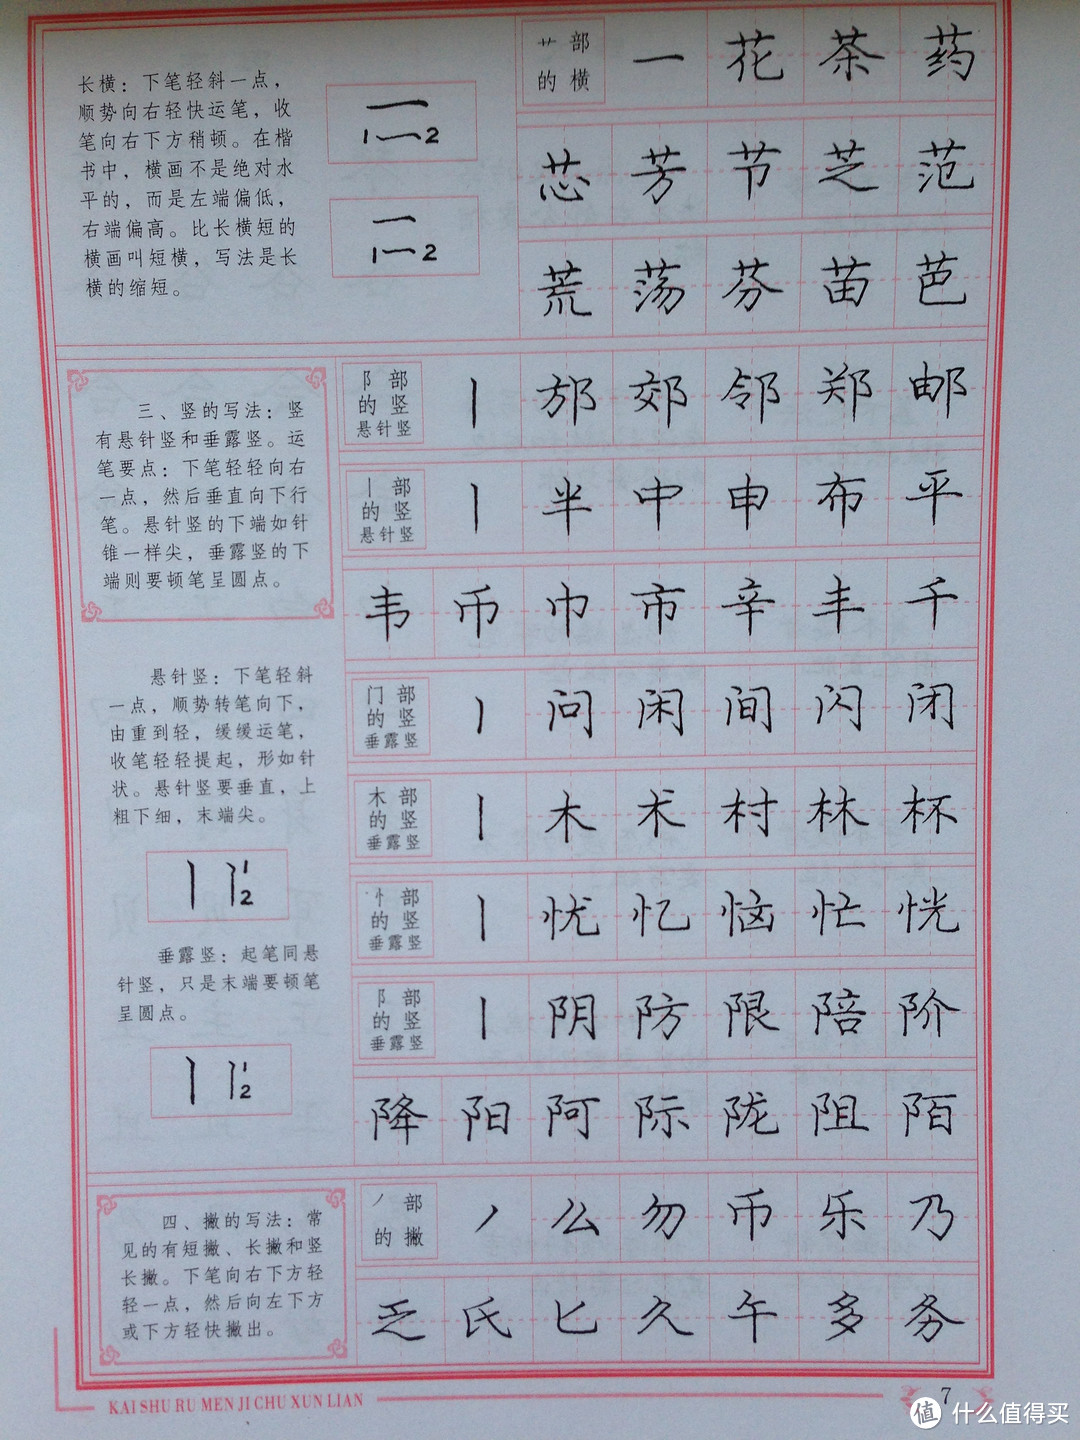 长横：下笔轻斜一点，
顺势向右轻快运笔，收
笔向右下方稍顿。在楷
书中，横画不是绝对水
平的，而是左端偏低，
右端偏高。比长横短的
横画叫短横，写法是长
横的缩短。
一
1一2
一
1一2
艹部
的横
一 花 茶 药
芯 芳 节 芝 范
荒 荡 芬 苗 芭
三、竖的写法：竖
有悬针竖和垂露竖。运
笔要点：下笔轻轻向右
一点，然后垂直向下行
笔。悬针竖的下端如针
锥一样尖，垂露竖的下
端则要顿笔呈圆点。
阝部
的竖
悬针竖
丨 邡 郊 邻 郑 邮
丨部
的竖
悬针竖
丨 半 中 申 布 平
韦 币 巾 市 辛 丰 千
悬针竖：下笔轻斜
一点，顺势转笔向下，
由重到轻，缓缓运笔，
收笔轻轻提起，形如针
状。悬针竖要垂直，上
粗下细，末端尖。
丨 丨1
2
垂露竖：起笔同悬
针竖，只是末端要顿笔
呈圆点。
丨 丨1
2
门部
的竖
垂露竖
丨 问 闲 间 闪 闭
木部
的竖
垂露竖
丨 木 术 村 林 杯
忄部
的竖
垂露竖
丨 忧 忆 恼 忙 恍
阝部
的竖
垂露竖
丨 阴 防 限 陪 阶
降 阳 阿 际 陇 阻 陌
四、撇的写法：常
见的有短撇、长撇和竖
长撇。下笔向右下方轻
轻一点，然后向左下方
或下方轻快撇出。
丿部
的撇
丿 么 勿 币 乐 乃
乏 氏 匕 久 午 多 务
KAI SHU RU MEN JI CHU XUN LIAN
7
值 什么值得买